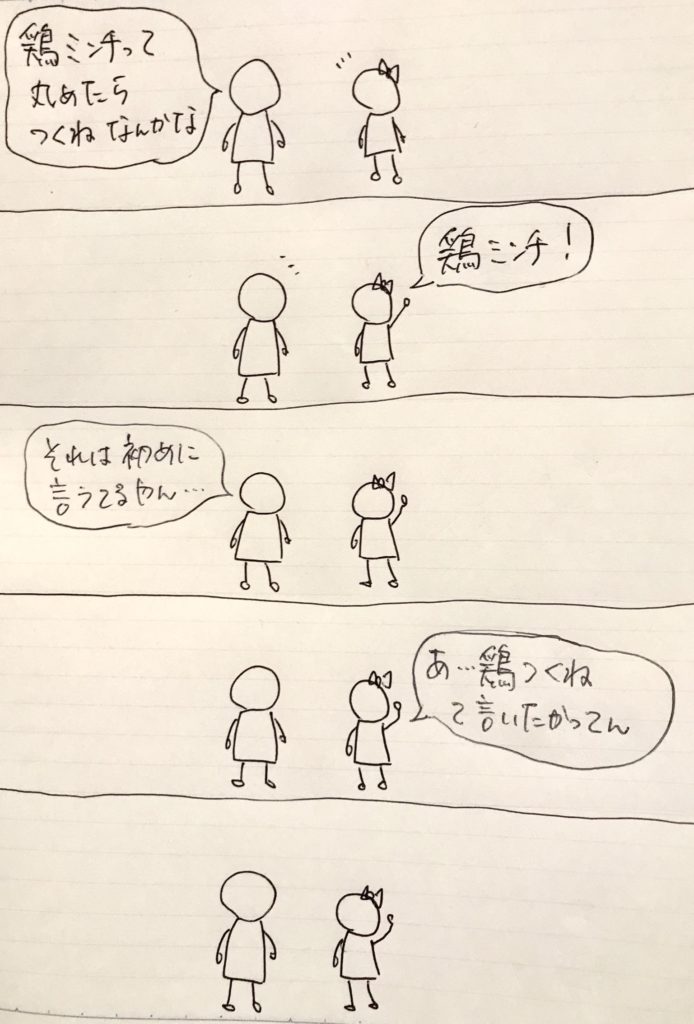 鶏ミンチって
丸めたら
つくねなんかな
鶏ミンチ！
それは初めに
言うてるやん…
あ…鶏つくね
て言いたかってん